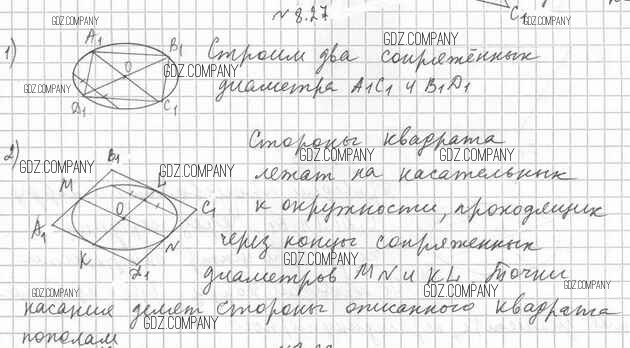 № 8.27
C₁
GDZ.COMPANY
1)
A₁
B₁
O
D₁
C₁
GDZ.COMPANY
GDZ.COMPANY
GDZ.COMPANY
Строим два сопряжённых
диаметра A₁C₁ и B₁D₁
2)
GDZ.COMPANY
B₁
M
L
A₁
O
C₁
K
N
D₁
GDZ.COMPANY
Стороны квадрата
GDZ.COMPANY
GDZ.COMPANY
лежат на касательных
к окружности, проходящих
через концы сопряженных
GDZ.COMPANY
диаметров MN и KL Точки
GDZ.COMPANY
GDZ.COMPANY
GDZ.COMPANY
касания делят стороны описанного квадрата
GDZ.COMPANY
пополам